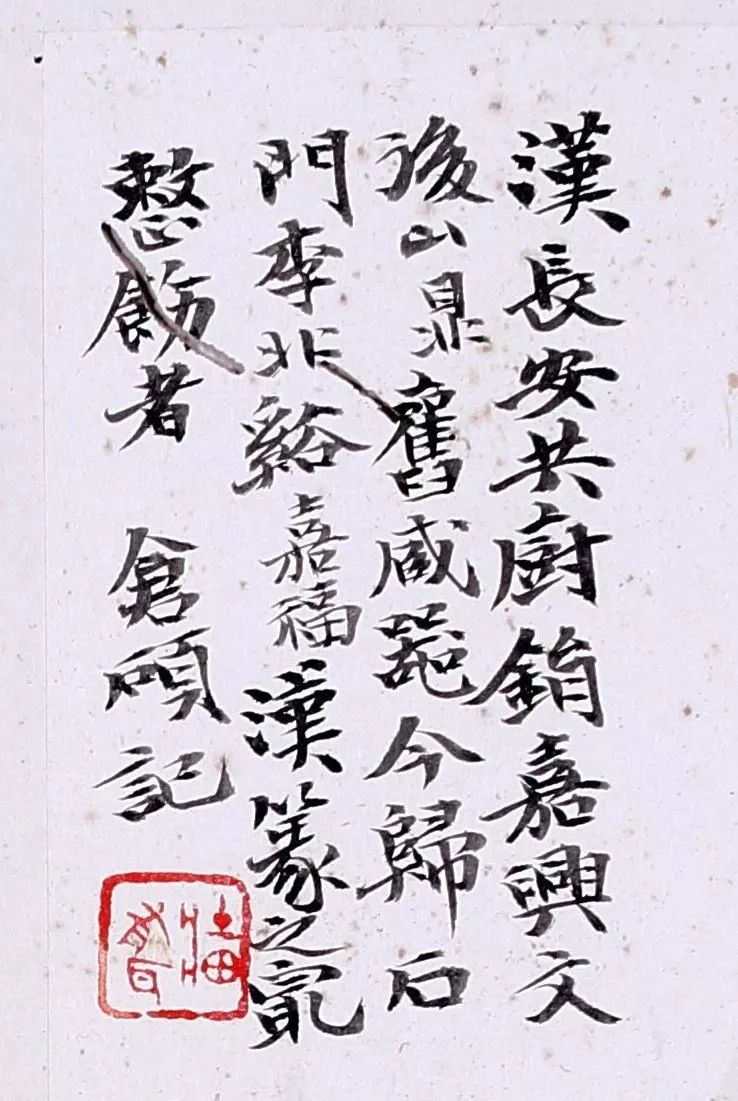 漢長安共廚鋗嘉興文
後山鼎舊臧器今歸石
門李北谿嘉福漢篆之㝡
整飭者 倉碩記